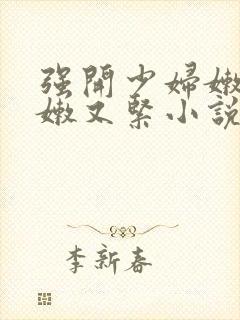 强開少婦嫩
嫩又緊小說
李新春